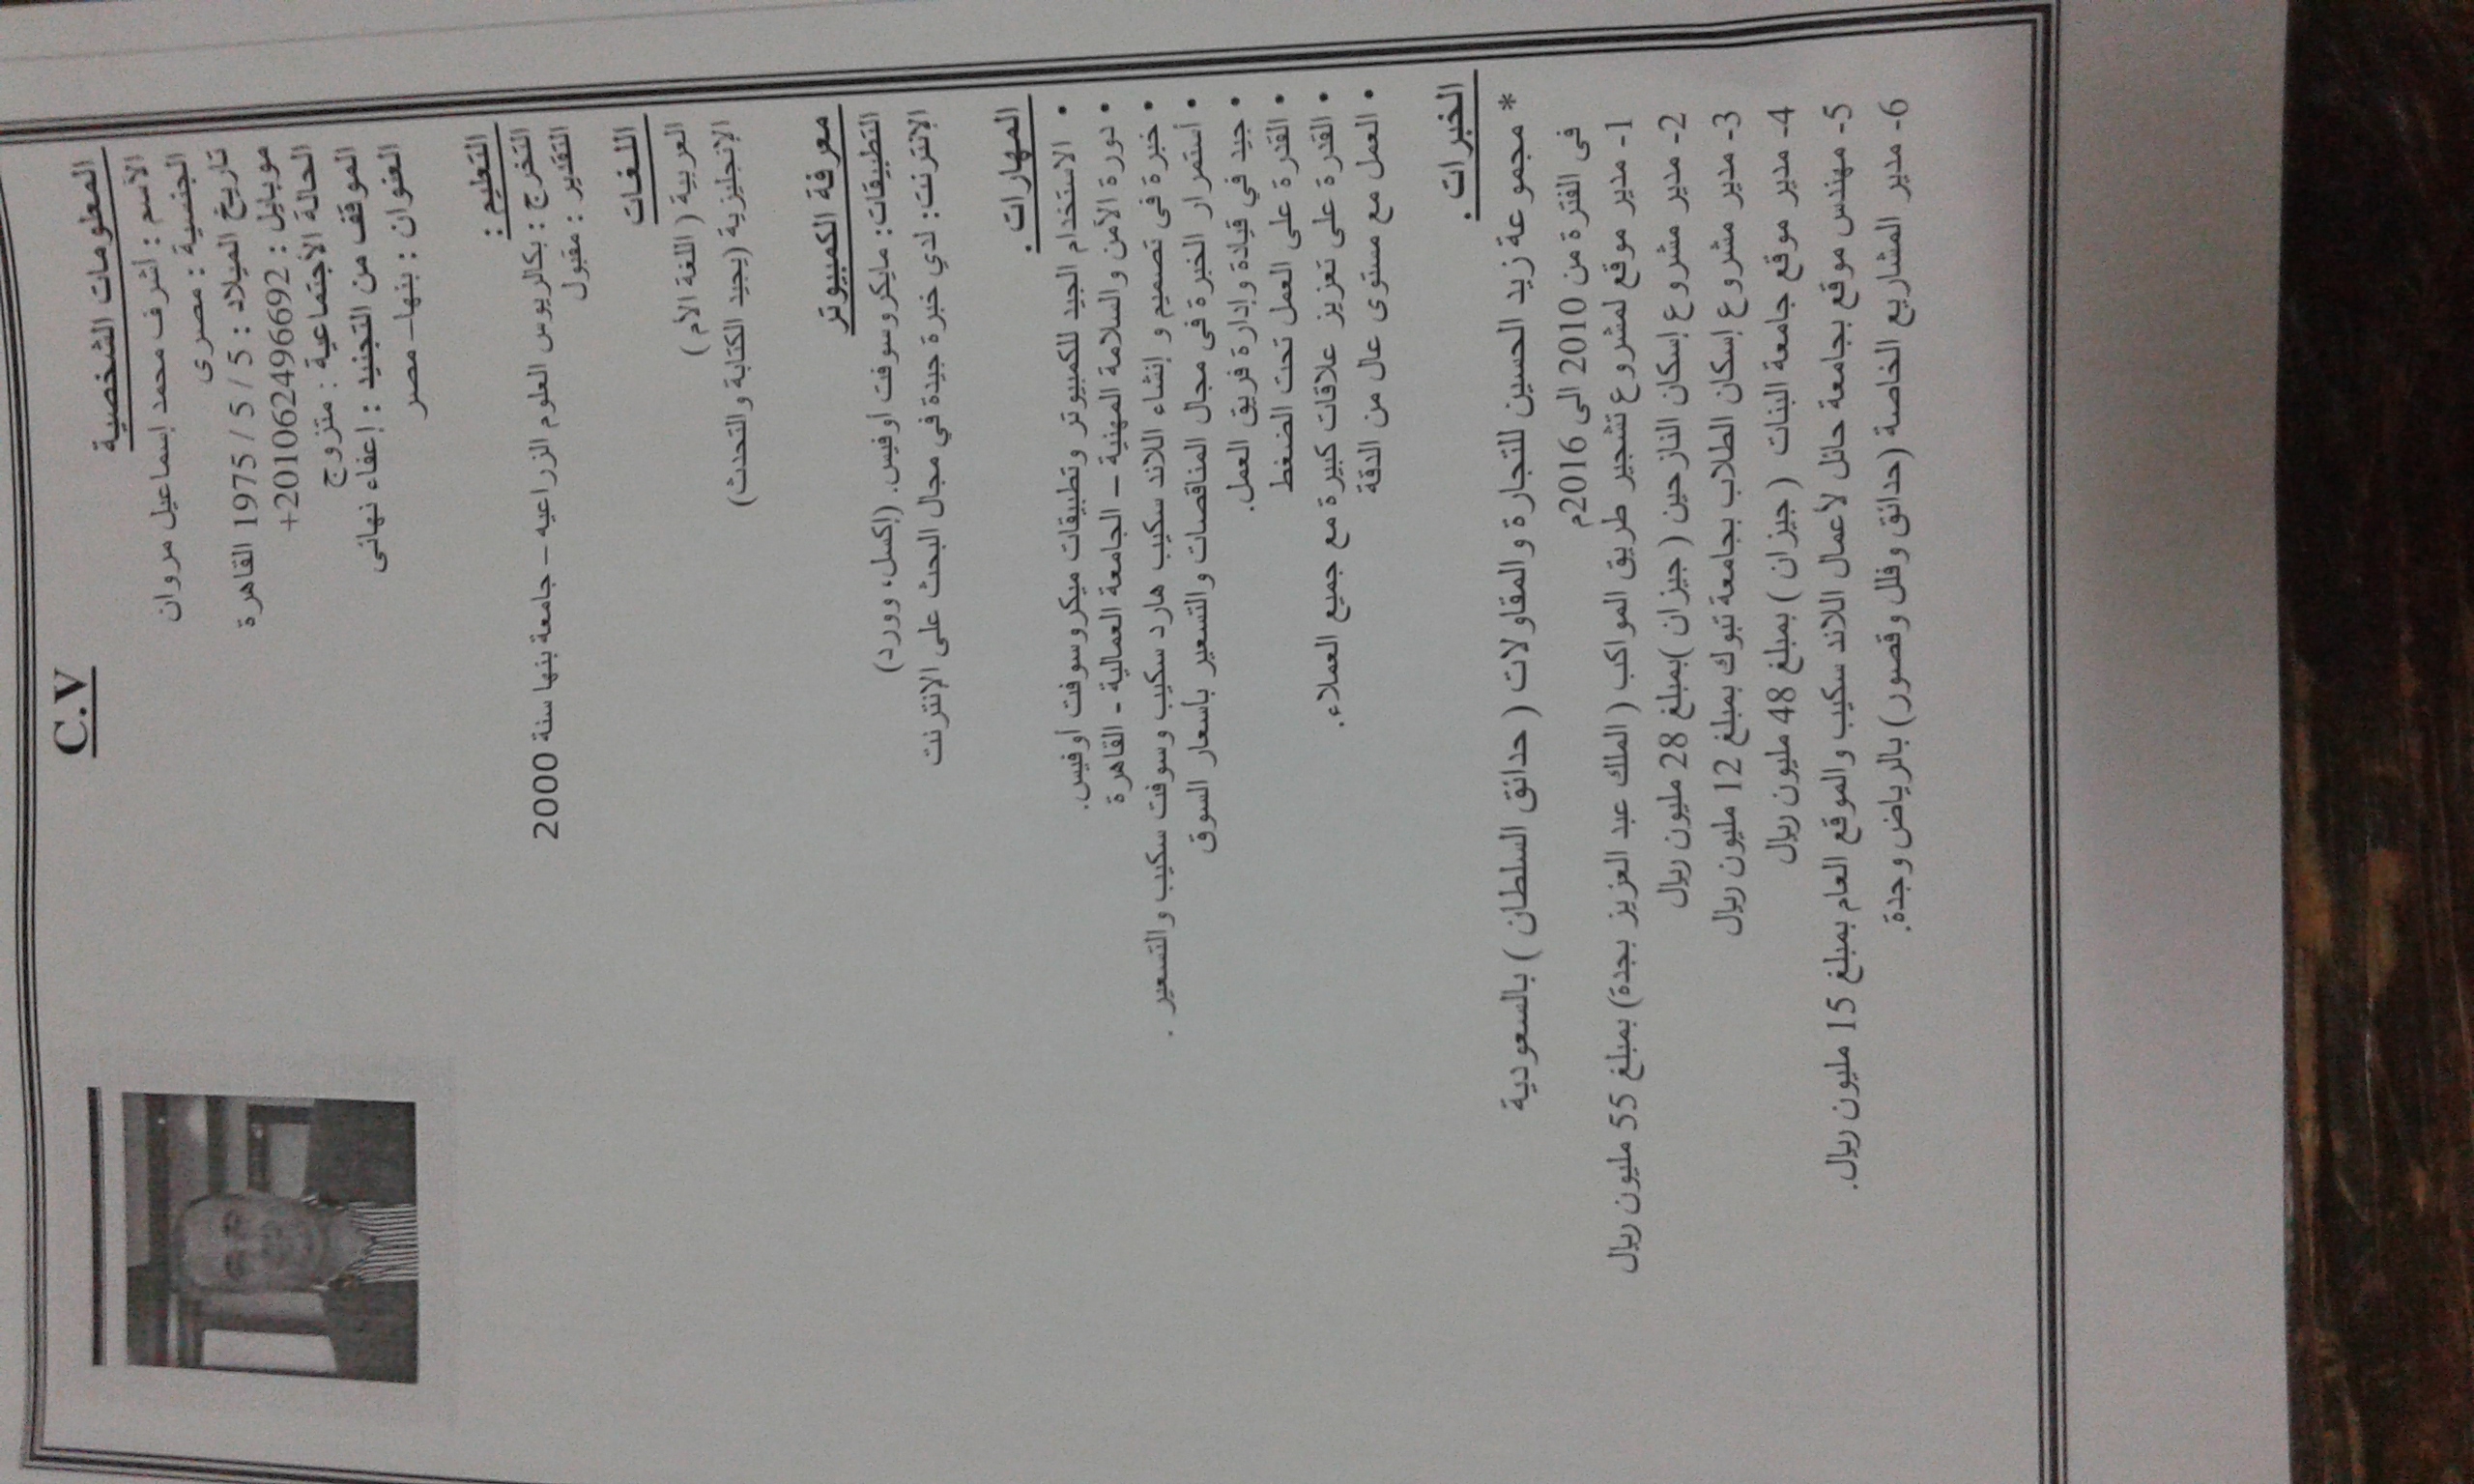 C.V
المعلومات الشخصية
الأسم : اشرف محمد إسماعيل مروان
الجنسية : مصرى
تاريخ الميلاد : 5 / 5 / 1975 القاهرة
موبايل : 201062496692+
الحالة الأجتماعية : متزوج
الموقف من التجنيد : إعفاء نهائى
العنوان : بنها– مصر
التعليم :
التخرج : بكالريوس العلوم الزراعيه – جامعة بنها سنة 2000
التقدير : مقبول
اللغات
العربية ( اللغة الأم )
الإنجليزية (يجيد الكتابة والتحدث)
معرفة الكمبيوتر
التطبيقات: مايكروسوفت أوفيس. (إكسل، وورد)
الإنترنت: لدي خبرة جيدة في مجال البحث على الإنترنت
المهارات .
• الاستخدام الجيد للكمبيوتر وتطبيقات ميكروسوفت أوفيس.
• دورة الأمن والسلامة المهنية – الجامعة العمالية - القاهرة
• خبرة فى تصميم و إنشاء اللاند سكيب هارد سكيب وسوفت سكيب والتسعير .
• أستمرار الخبرة فى مجال المناقصات والتسعير بأسعار السوق
• جيد في قيادة وإدارة فريق العمل.
• القدرة على العمل تحت الضغط
• القدرة على تعزيز علاقات كبيرة مع جميع العملاء.
• العمل مع مستوى عال من الدقة
الخبرات .
* مجموعة زيد الحسين للتجارة والمقاولات ( حدائق السلطان ) بالسعودية
فى الفترة من 2010 الى 2016م
1- مدير موقع لمشروع تشجير طريق المواكب ( الملك عبد العزيز بجدة) بمبلغ 55 مليون ريال
2- مدير مشروع إسكان النازحين ( جيزان )بمبلغ 28 مليون ريال
3- مدير مشروع إسكان الطلاب بجامعة تبوك بمبلغ 12 مليون ريال
4- مدير موقع جامعة البنات ( جيزان ) بمبلغ 48 مليون ريال
5- مهندس موقع بجامعة حائل لأعمال اللاند سكيب والموقع العام بمبلغ 15 مليون ريال.
6- مدير المشاريع الخاصة (حدائق وفلل وقصور) بالرياض وجدة.